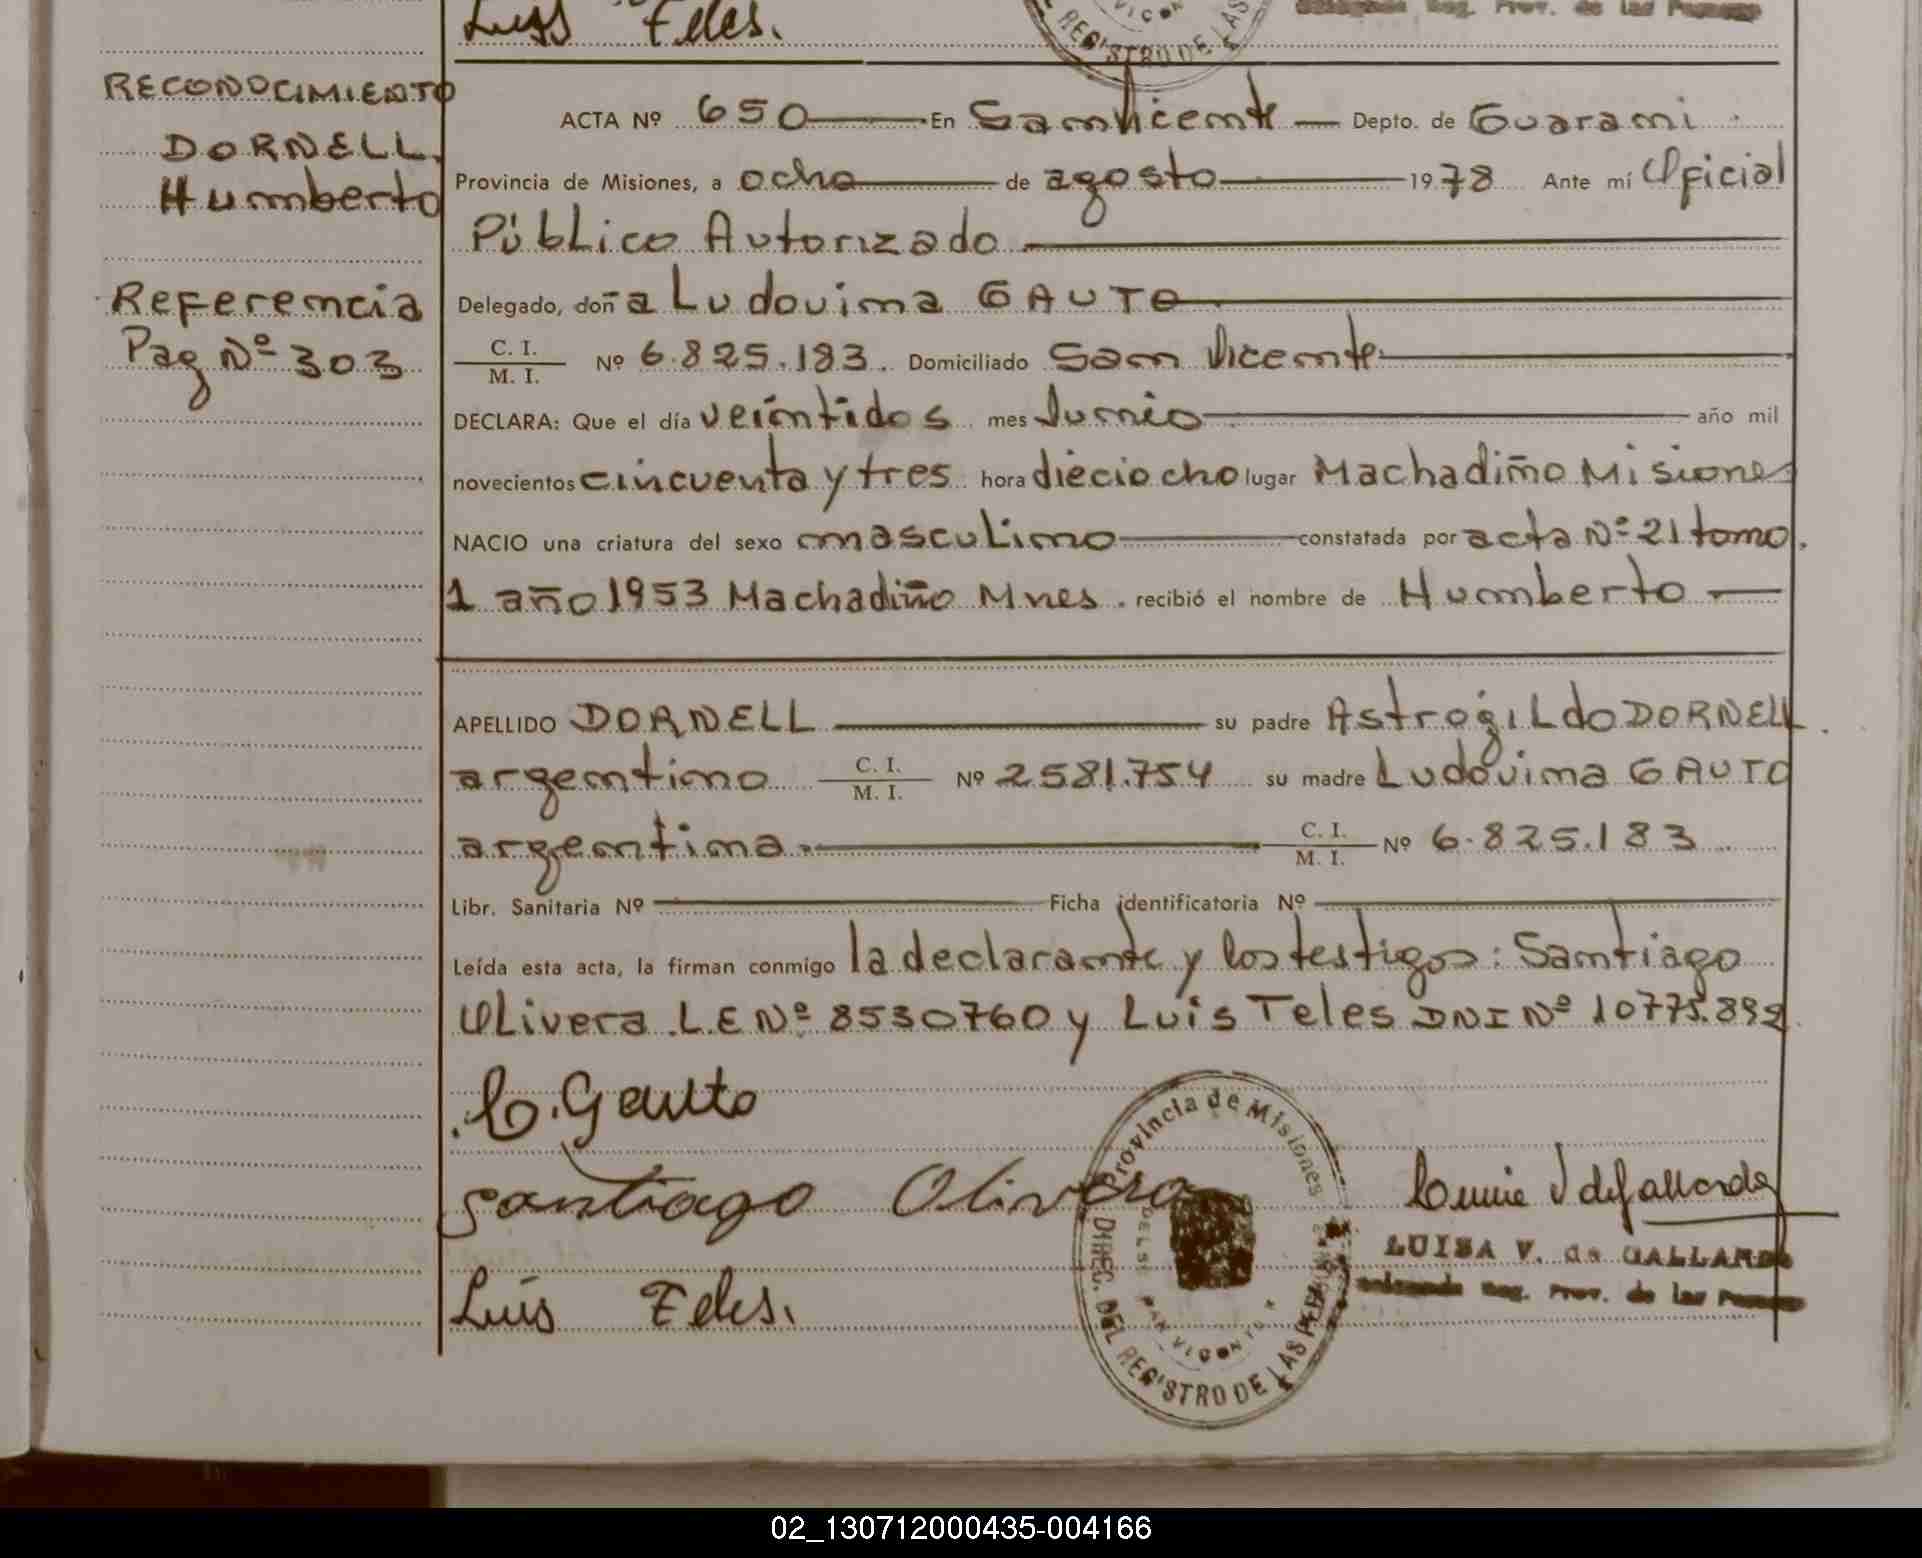 Luis Teles.
Reg. Prov. de las Personas
VICEN
REGISTRO DE LAS
RECONOCIMIENTO
DORNELL,
Humberto
Referencia
Pag Nº 303
ACTA Nº 650 En San Vicente Depto. de Guarani
Provincia de Misiones, a ocho de agosto 1978 Ante mí Oficial
Público Autorizado
Delegado, doña Ludovina GAUTO
C. I.
M. I. Nº 6.825.183. Domiciliado San Vicente
DECLARA: Que el día veintidos mes Junio año mil
novecientos cincuenta y tres hora dieciocho lugar Machadiño Misiones
NACIO una criatura del sexo masculino constatada por acta Nº 21 tomo.
1 año 1953 Machadiño Mnes. recibió el nombre de Humberto
APELLIDO DORNELL su padre Astrogildo DORNELL.
argentino C. I. M. I. Nº 2581.754 su madre Ludovina GAUTO
argentina. C. I. M. I. Nº 6.825.183
Libr. Sanitaria Nº Ficha identificatoria Nº
Leída esta acta, la firman conmigo la declarante y los testigos: Santiago
Olivera L.E Nº 8530760 y Luis Teles DNI Nº 10775.892
L. Gauto
Santiago Olivera
Luis Teles.
Provincia de Misiones
DIREC. DEL REGISTRO DE LAS PERS
SAN VICENTE
LUISA V. de GALLARDO
Delegada Reg. Prov. de las Personas
02_130712000435-004166